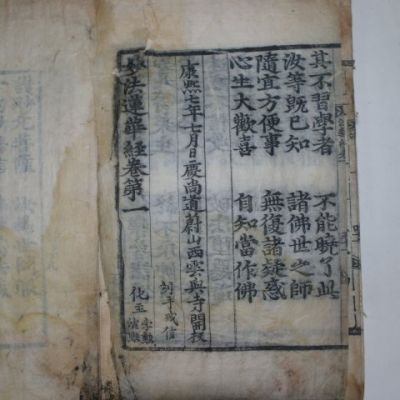 其不習學者 不能曉了此
汝等旣已知 諸佛世之師
隨宜方便事 無復諸疑惑
心生大歡喜 自知當作佛
康熙七年七月日慶尙道蔚山西雲興寺開板
刻手戒信
化主
妙法蓮華經卷第一